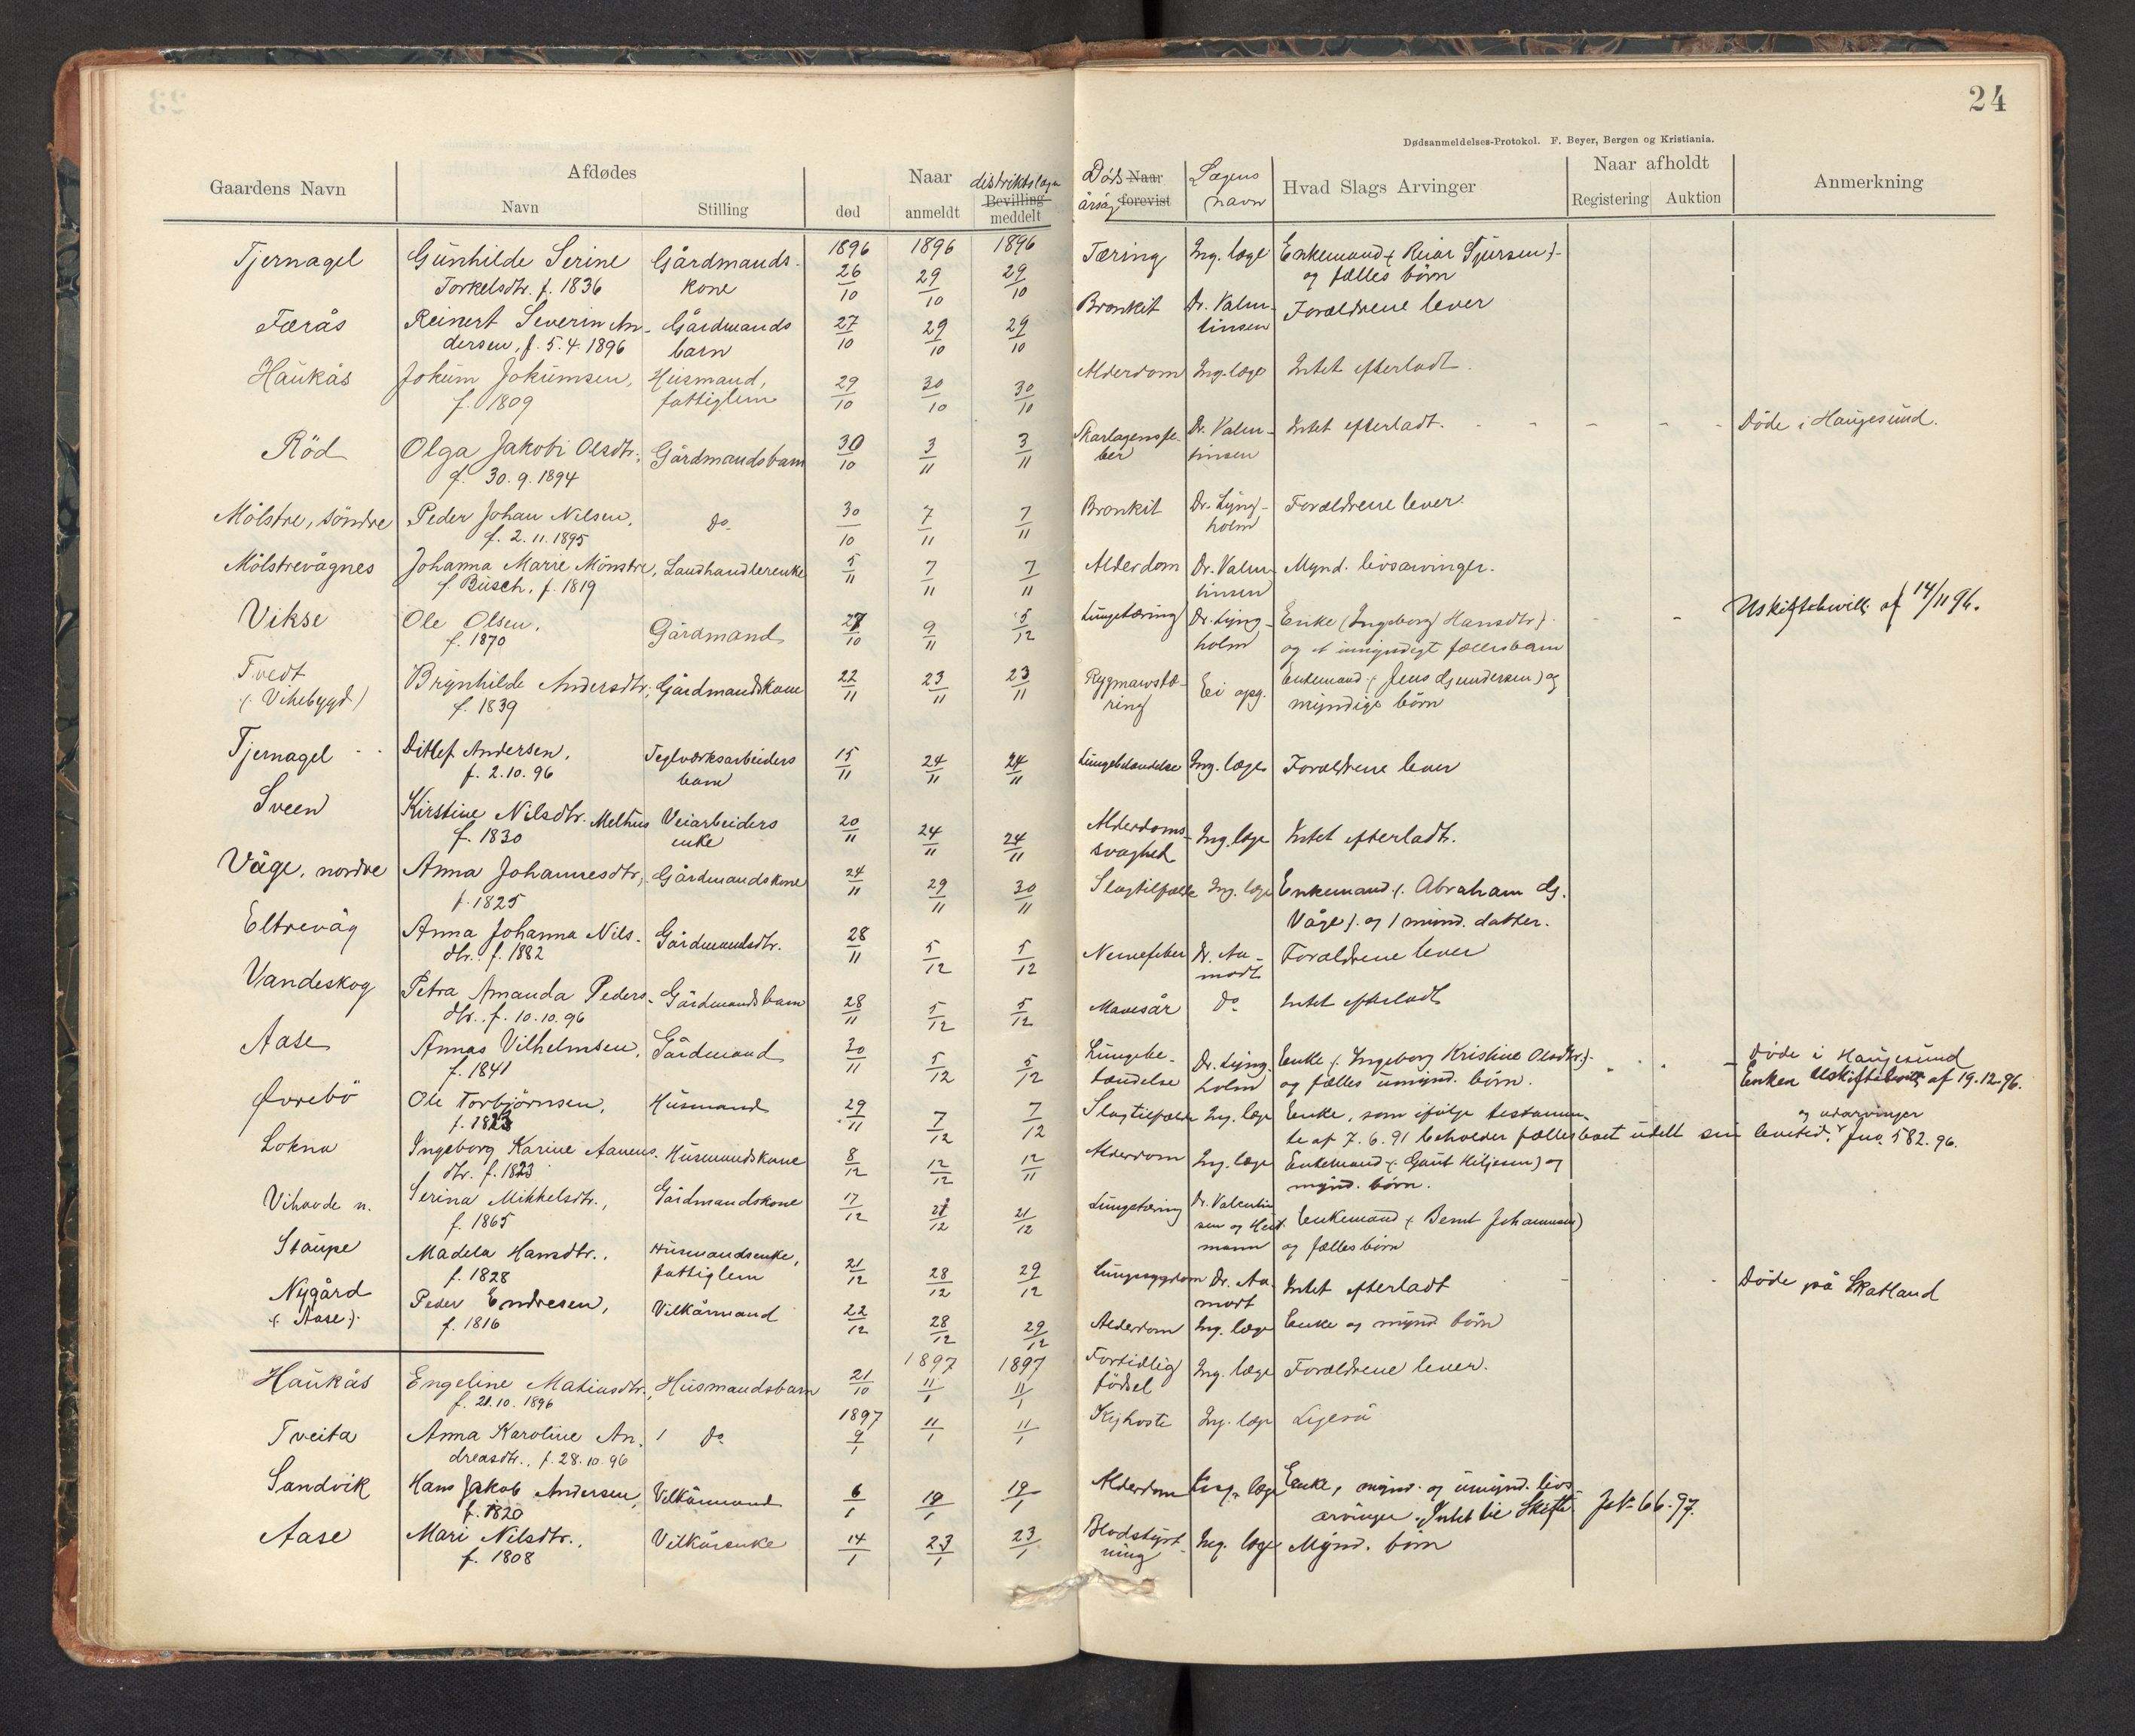 24
Dødsanmeldelses-Protokol. F. Beyer, Bergen og Kristiania.
Gaardens Navn Afdødes Naar distriktslæge Døds Naar Lægens Hvad Slags Arvinger Naar afholdt Anmerkning
Navn Stilling død anmeldt Bevilling meddelt årsag forevist navn Registering Auktion
Tjernagel Gunhilde Serine Gårdmands- 1896 26/10 1896 29/10 1896 29/10 Tæring Ing. læge Enkemand (Reiar Sjursen)
Torkelsdtr. f. 1836 kone og fælles børn
Færås Reinert Severin An- Gårdmands 27/10 29/10 29/10 Bronkit Dr. Valen- Forældrene lever
dersen, f. 5.4.1896 barn tinsen
Haukås Jokum Jokumsen, Husmand, 29/10 30/10 30/10 Alderdom Ing. læge Intet efterladt.
f. 1809 fattiglem
Röd Olga Jakobi Olsdtr. Gårdmandsbarn 30/10 3/11 3/11 Skarlagensfe- Dr. Valen- Intet efterladt. - - - - - Døde i Haugesund.
f. 30.9.1894 ber tinsen
Mölstre, söndre Peder Johan Nilsen, do 30/10 7/11 7/11 Bronkit Dr. Lyng- Forældrene lever.
f. 2.11.1895 holm
Mölstrevågnes Johanna Marie Mönstre, Landhandlerenke 5/11 7/11 7/11 Alderdom Dr. Valen- Mynd. livsarvinger.
f. Busch, f. 1819 tinsen
Vikse Ole Olsen, Gårdmand 27/10 9/11 5/12 Lungetæring Dr. Lyng- Enke (Ingeborg Hansdtr) - - Uskiftebevill. af 14/11 96.
f. 1870 holm og et umyndigt fællesbarn
Tvedt Brynhilde Andersdtr., Gårdmandskone 22/11 23/11 23/11 Rygmarvstæ- Ei opg. Enkemand (Jens Gundersen) og
(Vikebygd) f. 1839 ring myndige börn
Tjernagel - - Ditlef Andersen, Teglværksarbeiders 15/11 24/11 24/11 Lungebetændelse Ing. læge Forældrene lever
f. 2.10.96 barn
Sveen Kirstine Nilsdtr. Melhus Veiarbeiders 20/11 24/11 24/11 Alderdoms- Ing. læge Intet efterladt.
f. 1830 enke svaghed
Våge, nordre Anna Johannesdtr., Gårdmandskone 24/11 29/11 30/11 Slagtilfælde Ing. læge Enkemand (Abraham G.
f. 1825 Våge) og 1 mynd. datter.
Eltrevåg Anna Johanna Nils- Gårdmandsdtr. 28/11 5/12 5/12 Nervefeber Dr. Aa- Forældrene lever
dtr. f. 1882 modt
Vandeskog Petra Amanda Peders- Gårdmandsbarn 28/11 5/12 5/12 Mavesår do Intet efterladt
dtr. f. 10.10.96
Aase Annas Vilhelmsen, Gårdmand 30/11 5/12 5/12 Lungebe- Dr. Lyng- Enke (Ingeborg Kristine Olsdtr.) - - - Døde i Haugesund
f. 1841 tændelse holm og fælles umynd. börn. Enken Uskiftebevill. af 19.12.96.
Øvrebö Ole Torbjørnsen, Husmand 29/11 7/12 7/12 Slagtilfælde Ing. læge Enke, som ifölge testamen-
f. 1823 te af 7.6.91 beholder fællesboet udelt sin levetid, og udarvinger Jno. 582.96.
Lokna Ingeborg Karine Aanens- Husmandskone 8/12 12/12 12/11 Alderdom Ing. læge Enkemand (Gaut Kiljesen) og
dtr. f. 1823 mynd. börn.
Vihovde n. Serina Mikkelsdtr., Gårdmandskone 17/12 21/12 21/12 Lungetæring Dr. Valentin- Enkemand (Bernt Johannesen)
f. 1865 sen og mann og fælles börn
Staupe Madela Hansdtr., Husmandsenke, 21/12 28/12 29/12 Lungesygdom Dr. Aa- Intet efterladt - - - Døde på Skatland
f. 1828 fattiglem modt
Nygård Peder Endresen, Vilkårmand 22/12 28/12 29/12 Alderdom Ing. læge Enke og mynd. börn
(Aase) f. 1816
Haukås Engeline Matiasdtr., Husmandsbarn 21/10 1897 11/1 1897 11/1 Fortidlig Ing. læge Forældrene lever.
f. 21.10.1896 födsel
Tveita Anna Karoline An- do 1897 9/1 11/1 11/1 Kighoste Ing. læge Ligeså
dreasdtr., f. 28.10.96
Sandvik Hans Jakob Andersen, Vilkårmand 6/1 19/1 19/1 Alderdom Ing. læge Enke, mynd. og umynd. livs-
f. 1820 arvinger. Intet til Skifte Jno 66.97.
Aase Mari Nilsdtr., Vilkårsenke 14/1 23/1 23/1 Blodstyrt- Ing. læge Mynd. börn
f. 1808 ning